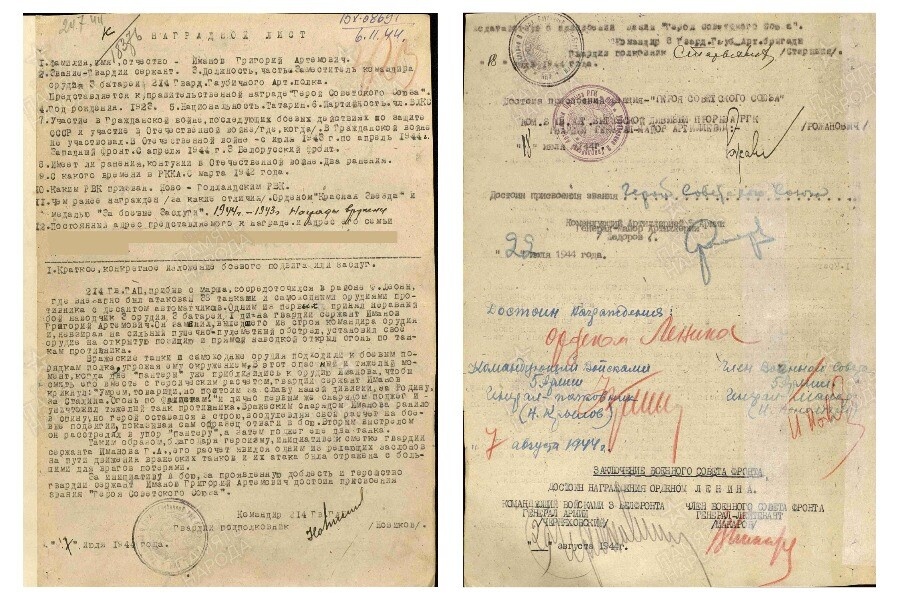 НАГРАДНОЙ ЛИСТ
6.11.44.
1.Фамилия,имя,отчество - Иманов Григорий Артемович.
2.Звание-Гвардии сержант. 3.Должность,часть-Заместитель командира
орудия 3 батареи 214 Гвард.Гаубичного Арт.полка.
Представляется к правительственной награде"Герой Советского Союза".
4.Год рождения. 1923. 5.Национальность.Татарин.6.Партийность.чл.ВЛКС
7.Участие в Гражданской войне,последующих боевых действиях по защите
СССР и участие в Отечественной войне/где,когда/.В Гражданской войне
не участвовал.В Отечественной войне -с июля 1943 г.по апрель 1944 г.
Западный Фронт.С апреля 1944 г. 3 Белорусский фронт.
8.Имеет ли ранения,контузии в Отечественной войне.Два ранения.
9.С какого времени в РККА.С марта 1942 года.
10.Каким РВК призван.
11.Чем ранее награжден /за какие отличия/.Орденом"Красная Звезда" и
медалью "За боевые Заслуги".
12.Постоянный адрес представляемого к награде.и адрес его семьи
1.Краткое,конкретное изложение боевого подвига или заслуг.
214 ГВ.ГАП,прибыв с марша,сосредоточился в районе
где внезапно был атакован 35 танками и самоходными орудиями про-
тивника с десантом автоматчиков.Одним из первых принял неравный
бой наводчик 3 орудия 3 батареи, 1 дивиз.гвардии сержант Иманов
Григорий Артемович.Он заменил,вышедшего из строя командира орудия
и,невзирая на сильный пушечно-пулеметный обстрел,установил свое
орудие на открытую позицию и прямой наводкой открыл огонь по тан-
кам противника.
Вражеские танки и самоходные орудия подходили к боевым по-
рядкам полка,угрожая ему окружением.В этот опасный и тяжелый мо-
мент,когда две "пантеры" уже приблизились к орудию Иманова,чтобы
смять его вместе с героическим расчетом,гвардии сержант Иманов
крикнул:"Умрем,товарищи,но постоим за славу нашей дивизии,за Родину,
за Сталина.Огонь по фашистам!"и лично первым же снарядом поджег и
уничтожил тяжелый танк противника.Вражеским снарядом Иманова ранило
но отважный герой оставался в строю,воодушевляя свой расчет на бое-
вые подвиги,показывая сам образец отваги в бою.Вторым выстрелом
он расстрелял в упор "пантеру",а затем поджег еще два танка.
Таким образом,благодаря героизму,инициативе и сметке гвардии
сержанта Иманова Г.А.,его расчет явился одним из решающих заслонов
на пути движения вражеских танков и их атака была отражена с боль-
шими для врагов потерями.
За инициативу в бою,за проявленную доблесть и геройство
гвардии сержант Иманов Григорий Артемович достоин присвоения
звания "Героя Советского Союза".
Командир 214 ГВ.Г
Гвардии подполковник /Новиков/.
"17" июля 1944 года.
"Герой Советского Союза".
Командир 3 Гвард.Гауб.Арт.бригады
Гвардии полковник /Старших/.
"18" июля 1944 года.
Достоин присвоения звания-"ГЕРОЯ СОВЕТСКОГО СОЮЗА"
ГВАРДИИ ГЕНЕРАЛ-МАЙОР АРТИЛЛЕРИИ- /РОЖАНОВИЧ/
июля 1944г.
Достоин присвоения звания Герой Советского Союза
Командующий Артиллерией 5 Армии
Генерал-майор Артиллерии
"22" июля 1944 года.
Достоин Награждения
орденом Ленина
Командующий войсками
5 Армии
Генерал-полковник
(Н. Крылов)
Член Военного Совета
5 Армии
Генерал-майор
"7" августа 1944г.
ЗАКЛЮЧЕНИЕ ВОЕННОГО СОВЕТА ФРОНТА
ДОСТОИН НАГРАЖДЕНИЯ ОРДЕНОМ ЛЕНИНА.
КОМАНДУЮЩИЙ ВОЙСКАМИ 3 БЕЛФРОНТА
ГЕНЕРАЛ АРМИИ
/ЧЕРНЯХОВСКИЙ/
ЧЛЕН ВОЕННОГО СОВЕТА ФРОНТА
ГЕНЕРАЛ-ЛЕЙТЕНАНТ
/МАКАРОВ/
августа 1944г.